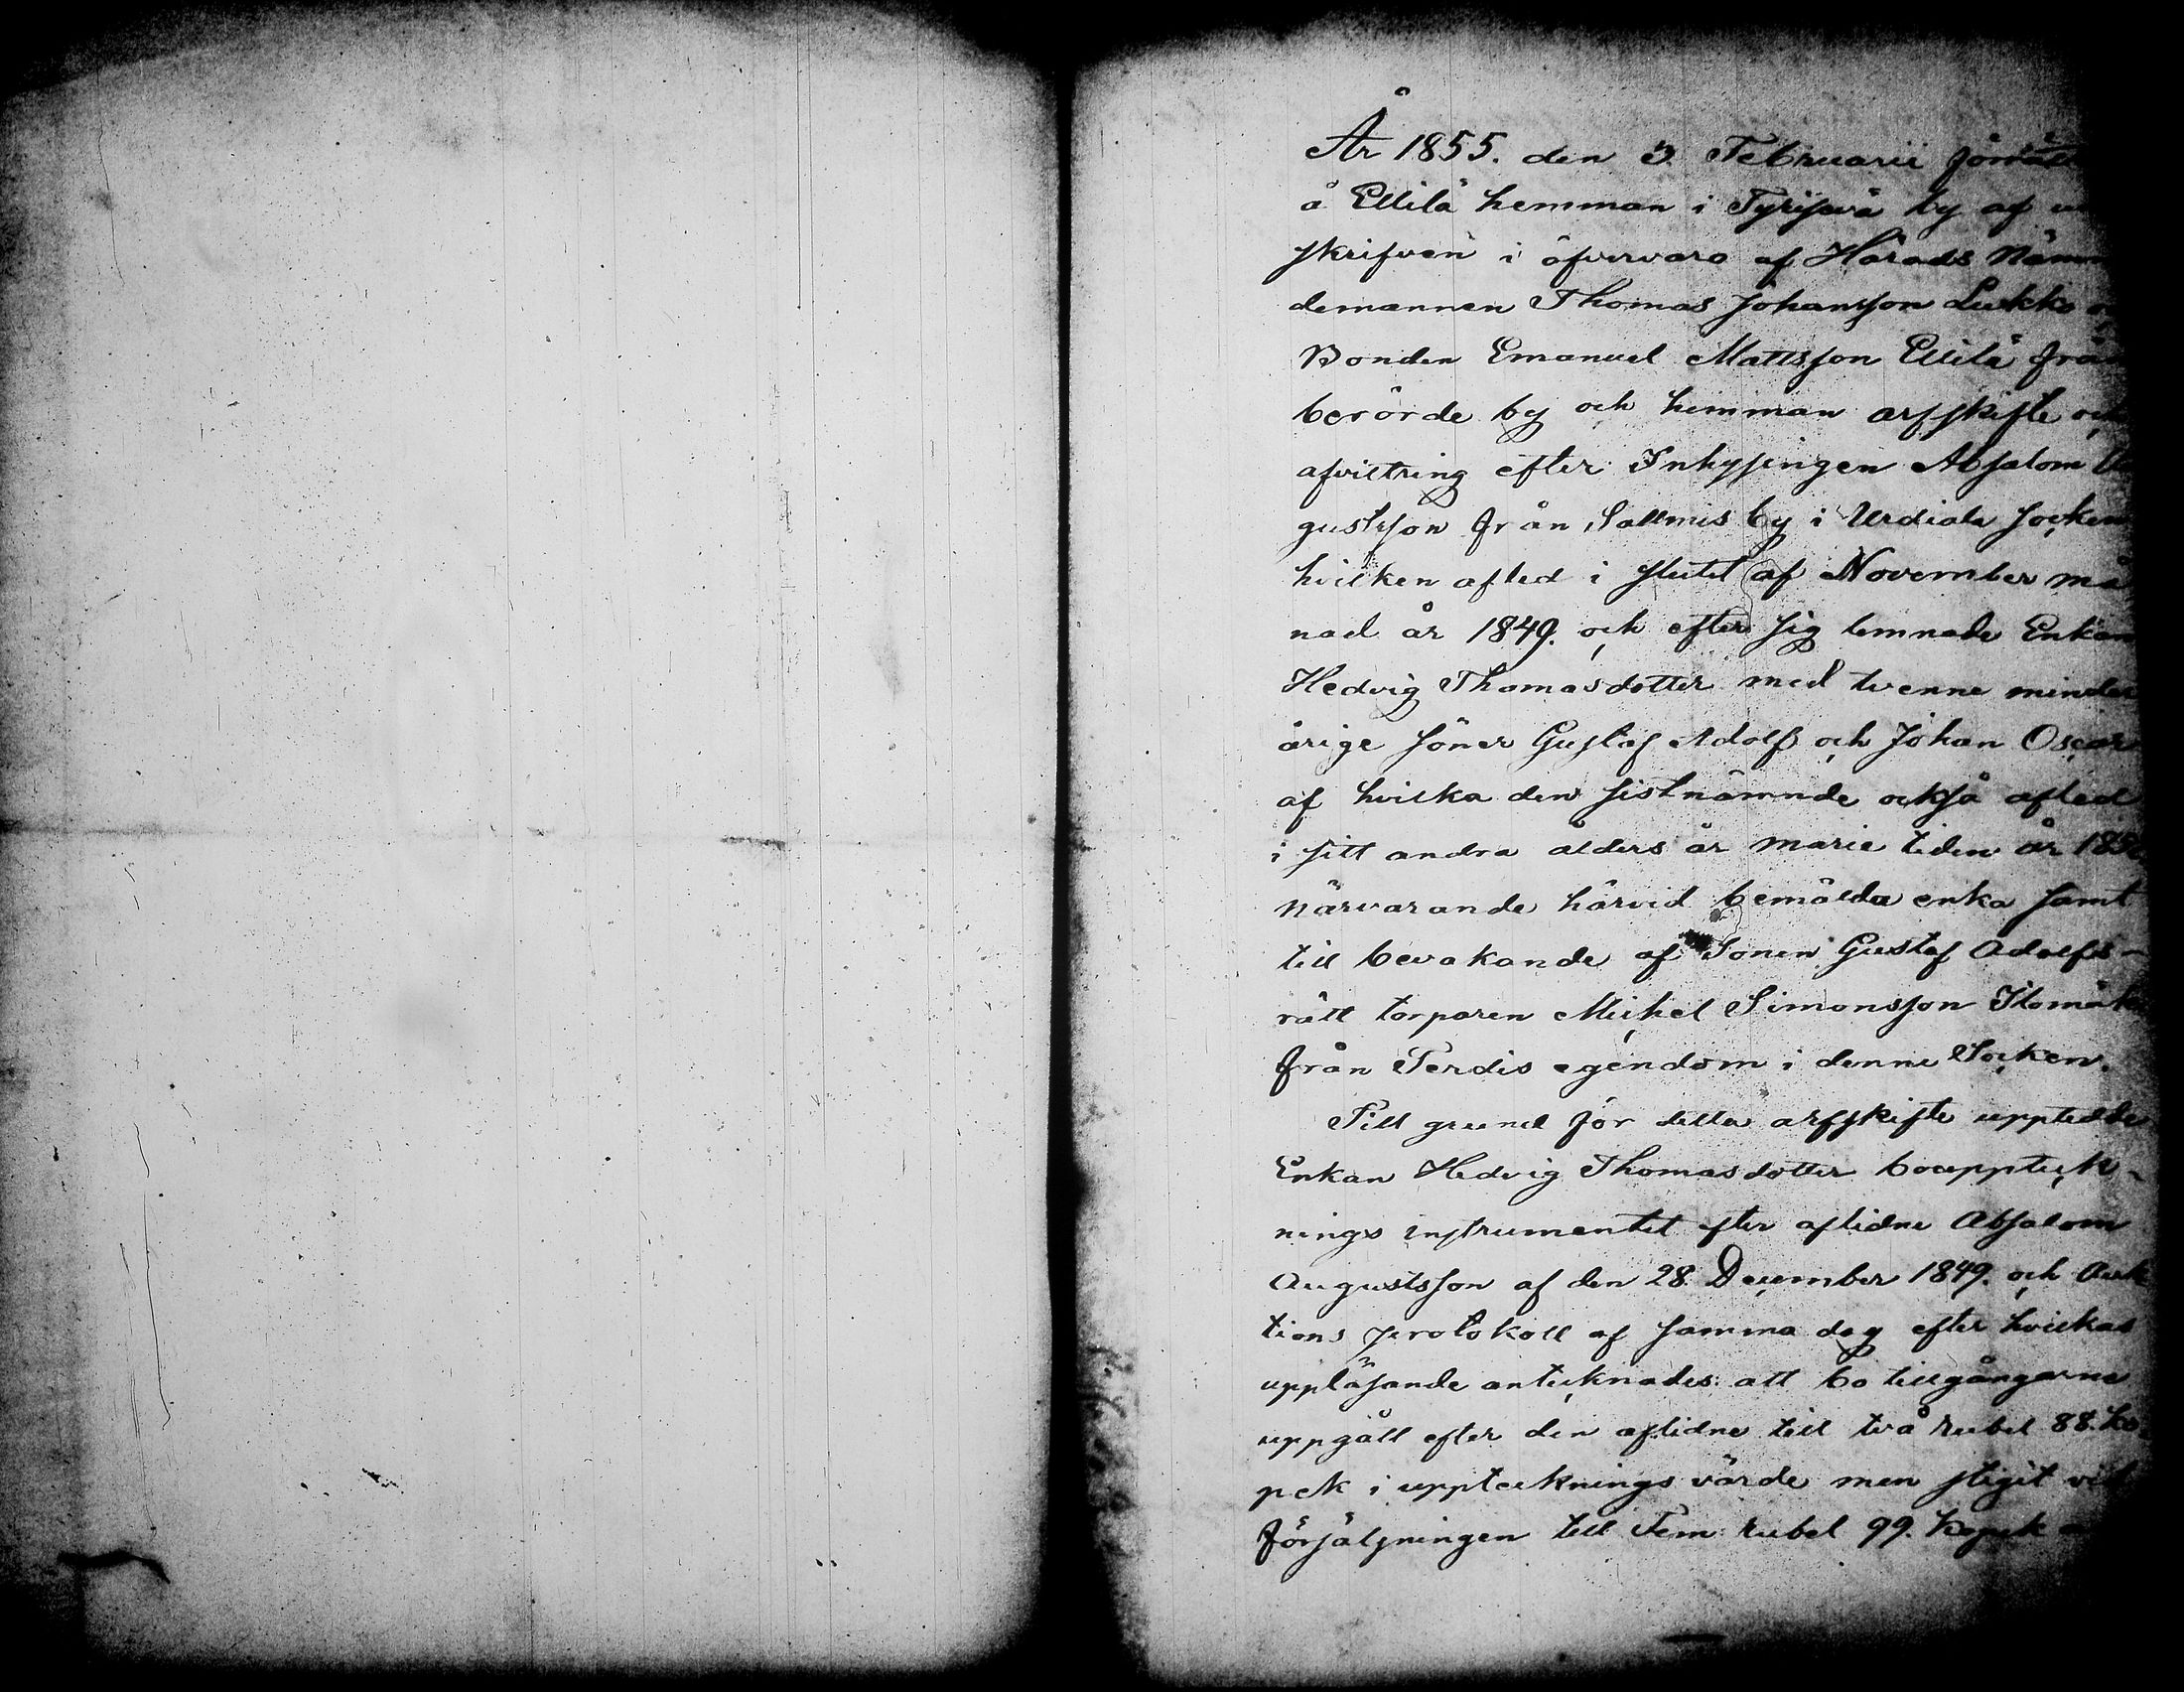 År 1855. den 3 Februarii förrätt
å Ellilä hemman i Tyrisevä by af un
skrifven i öfvervaro af Härads Näm
demannen Thomas Johansson Lukko o
Bonden Emanuel Mattsson Ellilä från
berörde by och hemman arfskifte och
afvittring efter Inhysingen Absalom
gustsson från Salmis by i Urdiala Socken
hvilken afled i slutet af November må
nad år 1849. och efter sig lemnade Enkan
Hedvig Thomasdotter med tvenne minder
årige Söner Gustaf Adolf och Johan Oscar
af hvilka den sistnämnde också afled
i sitt andra ålders år marie tiden år 185
närvarande härvid bemälda enka samt
till bevakande af Sonen Gustaf Adolfs
rätt torparen Michel Simonsson Ilomäki
från Terdis egendom i denne Socken.
Till grund för detta arfskifte upptedde
Enkan Hedvig Thomasdotter bouppteck-
nings instrumentet efter aflidne Absalom
Augustsson af den 28 December 1849. och Auk
tions protokoll af samma dag efter hvilkas
uppläsande antecknades: att bo tillgångarne
uppgått efter den aflidne till två rubel 88. ko
pek i upptecknings värde men stigit vid
försäljningen till Fem rubel 99. kopek